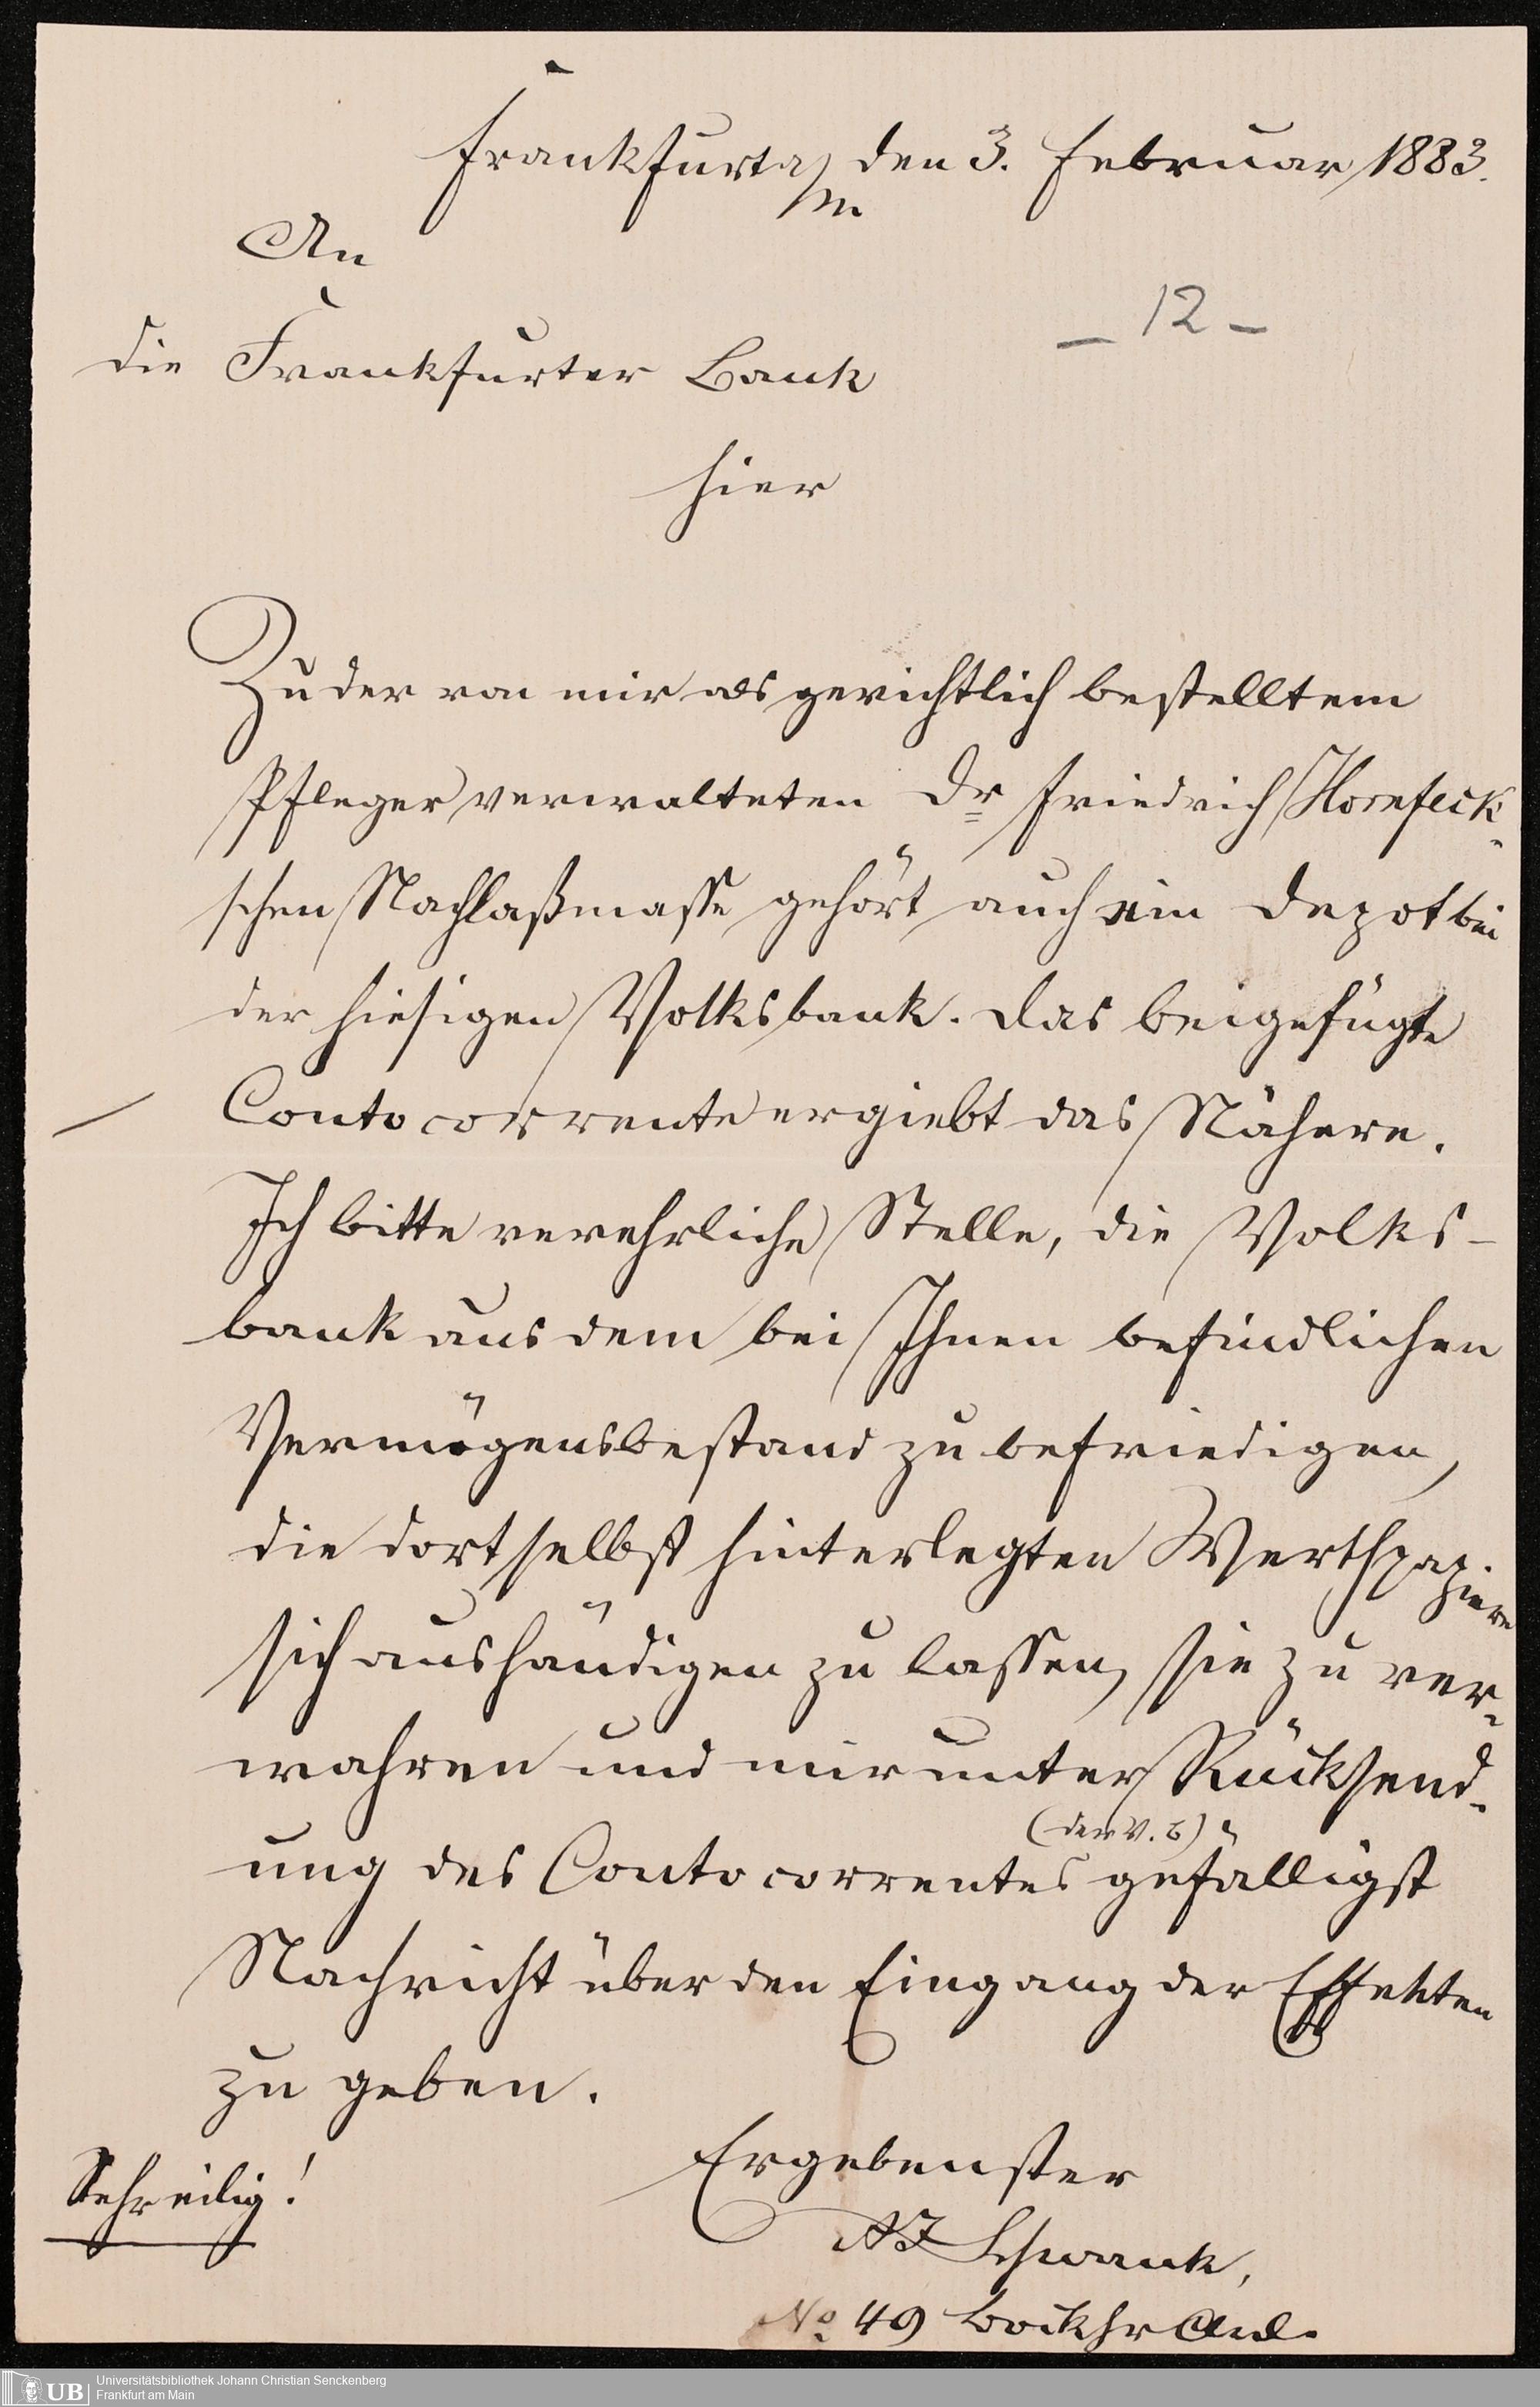 Frankfurt a/m den 3. Februar 1883.
An
- 12 -
die Frankfurter Bank
hier
Zu der von mir als gerichtlich bestelltem
Pfleger verwalteten Dr Friedrich Hornfeck-
schen Nachlaßmasse gehört auch ein Depot bei
der hiesigen Volksbank. Das beigefügte
Conto corrente ergiebt das Nähere.
Ich bitte verehrliche Stelle, die Volks-
bank aus dem bei Ihnen befindlichen
Vermögensbestand zu befriedigen,
die dortselbst hinterlegten Werthpapiere
sich aushändigen zu lassen, sie zu ver-
wahren und mir unter Rücksend-
(der V. B)
ung des Conto correntes gefälligst
Nachricht über den Eingang der Effekten
zu geben.
Ergebenster
Sehr eilig!
Schwank,
No 49
Universitätsbibliothek Johann Christian Senckenberg
UB Frankfurt am Main